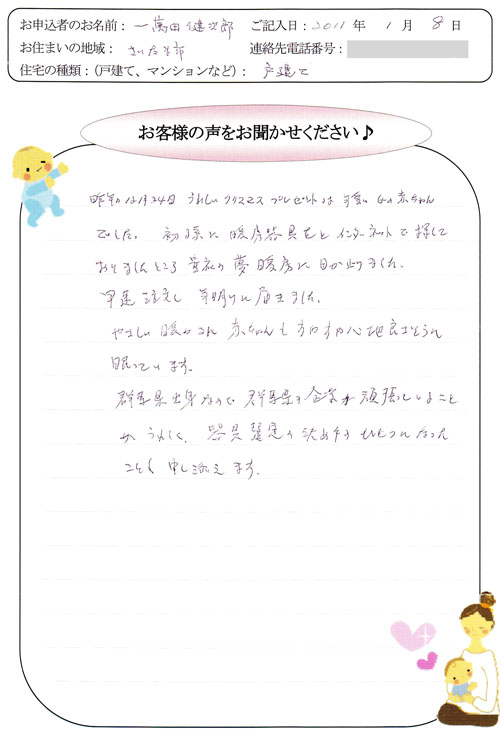 お申込者のお名前：一萬田健次郎　ご記入日：2011年1月8日
お住まいの地域：さいたま市　連絡先電話番号：
住宅の種類：（戸建て、マンションなど）：戸建て
お客様の声をお聞かせください♪
昨年の12月24日 うれしいクリスマスプレゼントは可愛い女の赤ちゃん
でした。初孫に暖房器具をとインターネットで探して
おりましたところ 貴社の夢暖房に目が止りました。
早速注文し 年明けに届きました。
やさしい暖かさに 赤ちゃんもすやすや心地良さそうに
眠っています。
群馬県出身なので 群馬県の企業が頑張っていること
がうれしく、器具選の決め手のひとつになった
ことも 申し添えます。